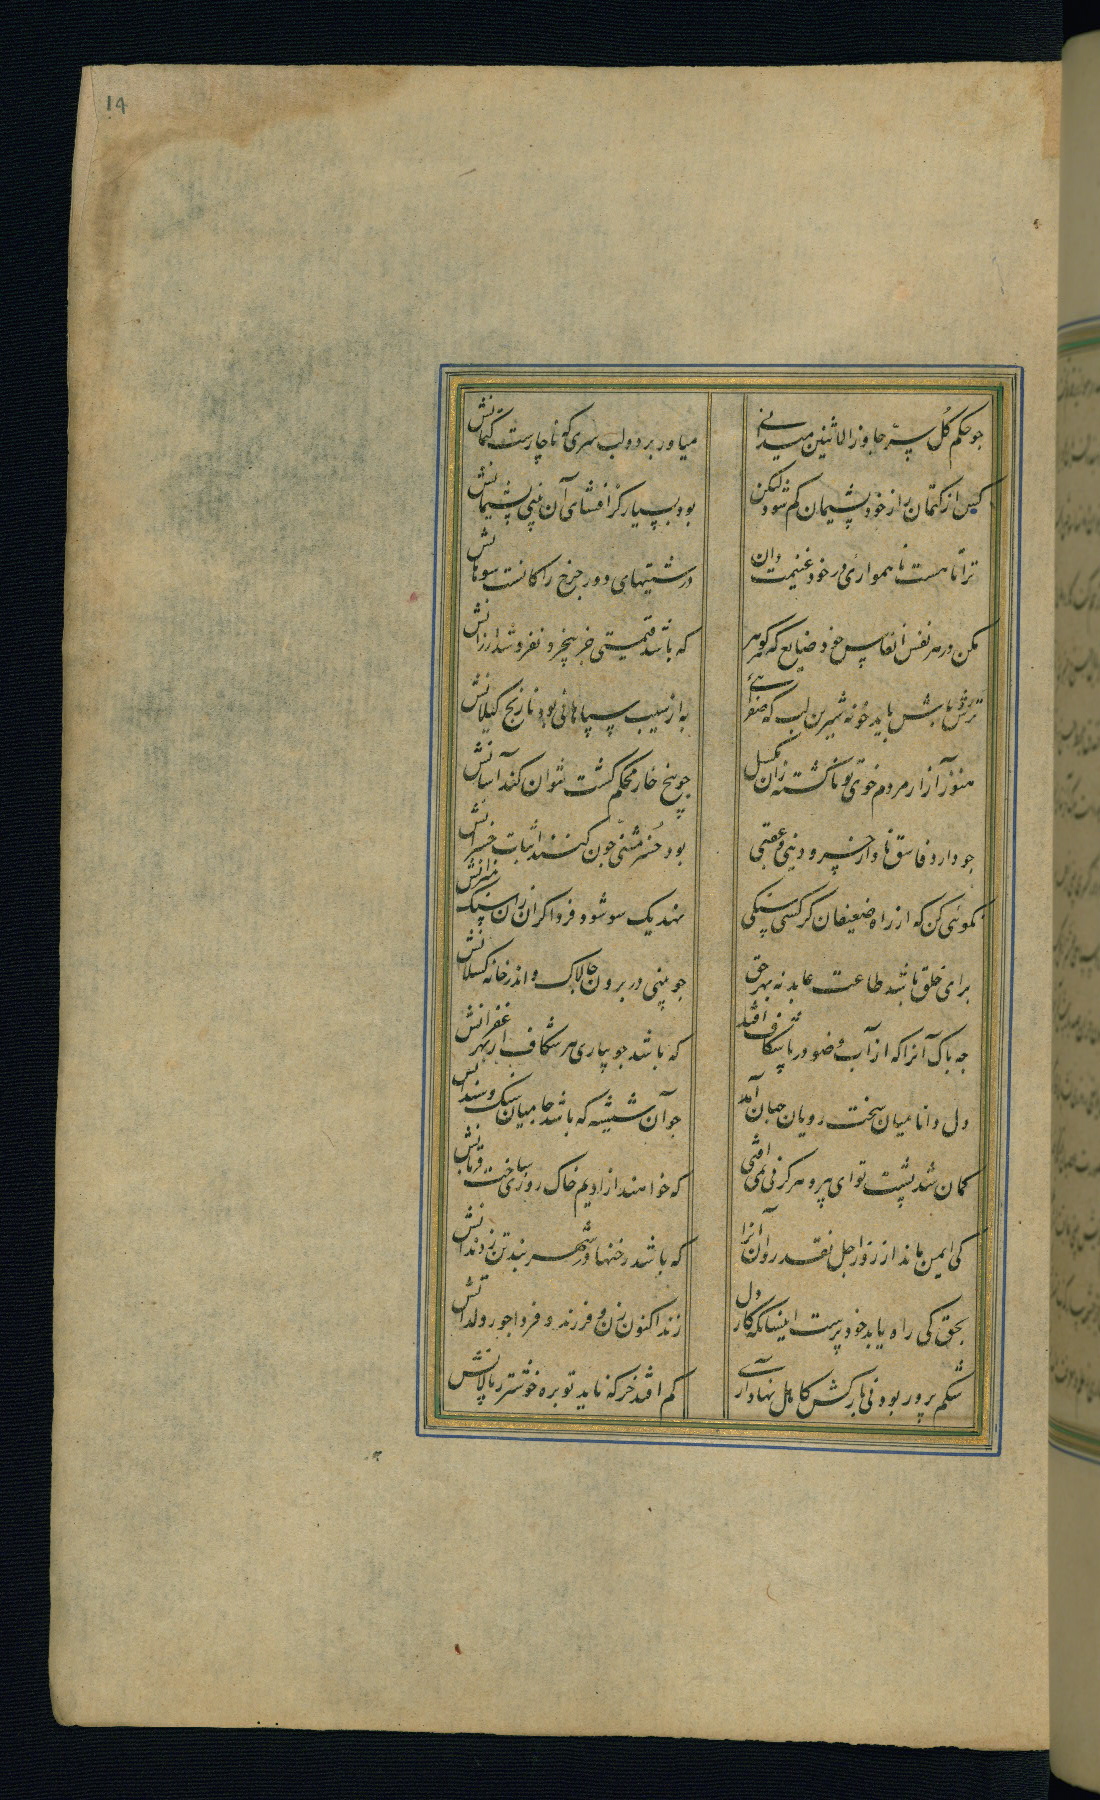 14
چو حکم کل سرّ جاوز الاثنین میدانی
میاور بر دو لب سری که ناچارست کتمانش
کس از کتمان راز خود پشیمان کم شود لیکن
بود بسیار کز افشای آن بینی پشیمانش
ترا تا هست ناهمواری در خود غنیمت دان
درشتیهای دور چرخ را کانست سوهانش
مکن در هر نفس انفاس خود ضایع که گوهر
که باشد قیمتی جز بیخرد نفروشد ارزانش
ترش باش باید خو نه شیرین لب که صفرائی
به از سیب سپاهانی بود نارنج گیلانش
هنوز آزار مردم خوی تو ناگشته زان بگسل
چو بیخ خار محکم گشت نتوان کند آسانش
چو دارد فاسق نادار خسر دنیی و عقبی
بود خسر مثنّی چون کنند اثبات خسرانش
نکوئی کن که از راه ضعیفان گر کسی سنگی
نهد یک سو شود فردا گران زان سنگ میزانش
برای خلق باشد طاعت عابد نه بهر حق
چو بینی در برون چالاک و اندر خانه کسلانش
چه باک آنرا که از آب وضو در پا شکاف افتد
که باشد جویباری هر شکاف از بهر غفرانش
دل دانا میان سخت رویان جهان آمد
چو آن شیشه که باشد جا میان سنک و سندانش
کمان شد پشت تو ای پیر و هرگز پی نمی افتی
که خواهند از ادیم خاک روزی ساخت قربانش
کی ایمن ماند از زرّاجل نقد روان آنرا
که باشد رخنها در شهر بند تن ز دندانش
بحق کی راه یابد خود پرست اینسانکه کار دل
زند اکنون زن و فرزند و فردا حور و ولدانش
شکم پرور بود نی بارکش کاهل نهاد آری
کم افتد خر که ناید توبره خوشتر ز پالانش